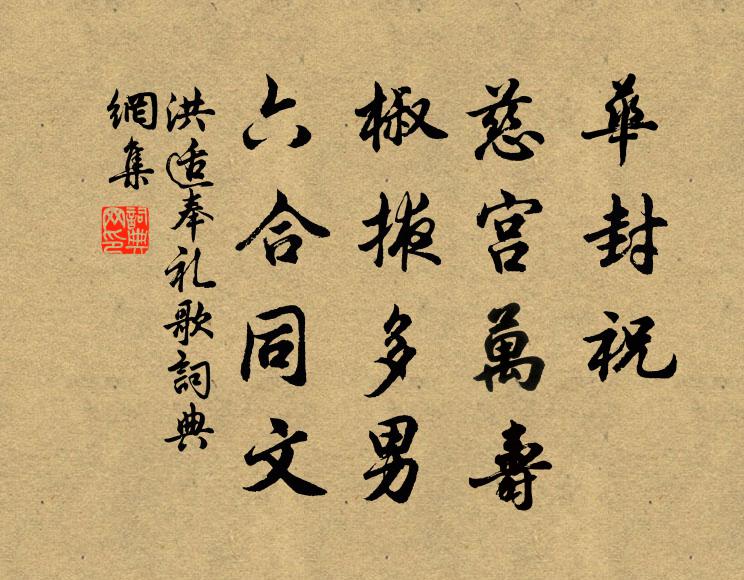 華封祝
慈宮萬壽
椒掖多男
六合同文
洪适奉礼歌詞典
網集
詞典網印